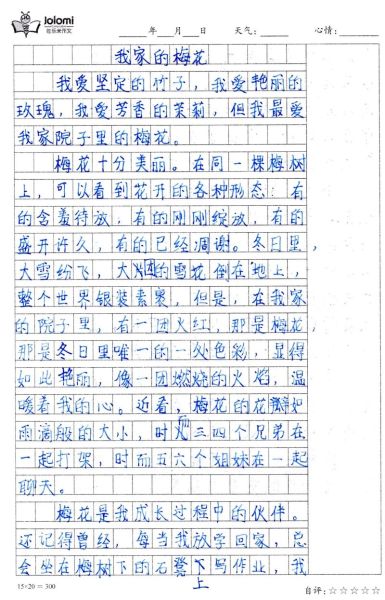 lolomi
拉乐米作文
年 月 日 天气: 心情:
我家的梅花
我爱坚定的竹子，我爱艳丽的
玫瑰，我爱芳香的茉莉，但我最爱
我家院子里的梅花。
梅花十分美丽。在同一棵梅树
上，可以看到花开的各种形态：有
的含羞待放，有的刚刚绽放，有的
盛开许久，有的已经凋谢。冬日里，
大雪纷飞，大团的雪花倒在地上，
整个世界银装素裹，但是，在我家
的院子里，有一团火红，那是梅花，
那是冬日里唯一的一处色彩，显得
如此艳丽，像一团燃烧的火焰，温
暖着我的心。近看，梅花的花瓣如
雨滴般的大小，时而三四个兄弟在
一起打架，时而五六个姐妹在一起
聊天。
梅花是我成长过程中的伙伴。
还记得曾经，每当我放学回家，总
会坐在梅树下的石凳上写作业，我
15×20=300
自评:☆☆☆☆☆